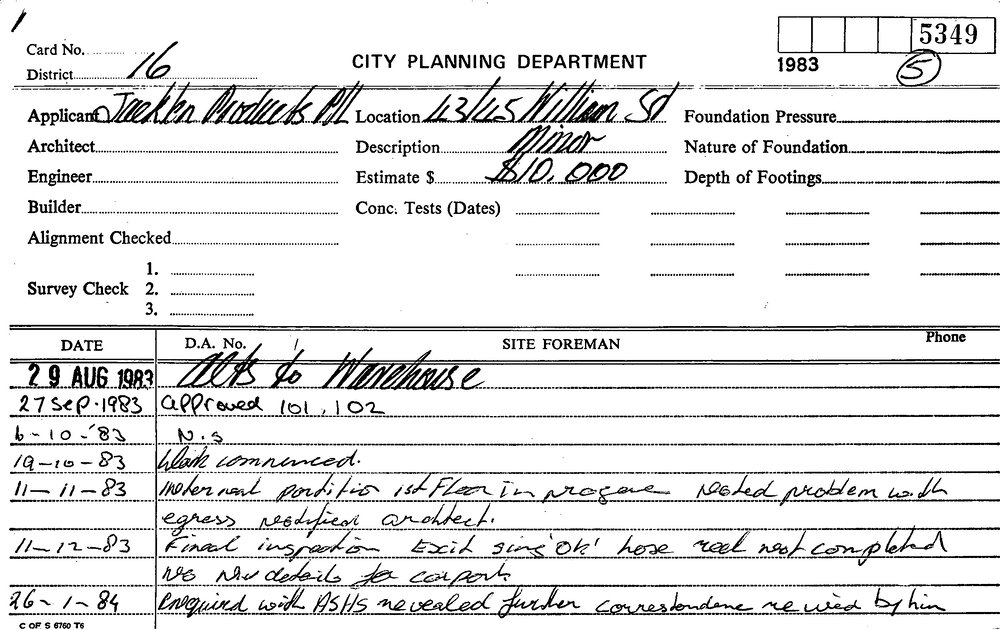 5349
Card No.
1983
5
District 16
CITY PLANNING DEPARTMENT
Applicant Products P/L Location 43/45 William St Foundation Pressure
Architect Description Minor Nature of Foundation
Engineer Estimate $ $10,000 Depth of Footings
Builder Conc. Tests (Dates)
Alignment Checked
1.
Survey Check 2.
3.
DATE D.A. No. SITE FOREMAN Phone
29 AUG 1983 alts to Warehouse
27 Sep. 1983 approved 101, 102
6-10-'83 N.S
19-10-83 Work commenced.
11-11-83 partitio 1st Floor In problem with
egress architect.
11-12-83 Final inspection Exit sing 'OK' hose reel not completed
No new details for carport
26-1-84 with revealed further by him
C OF S 6760 T6